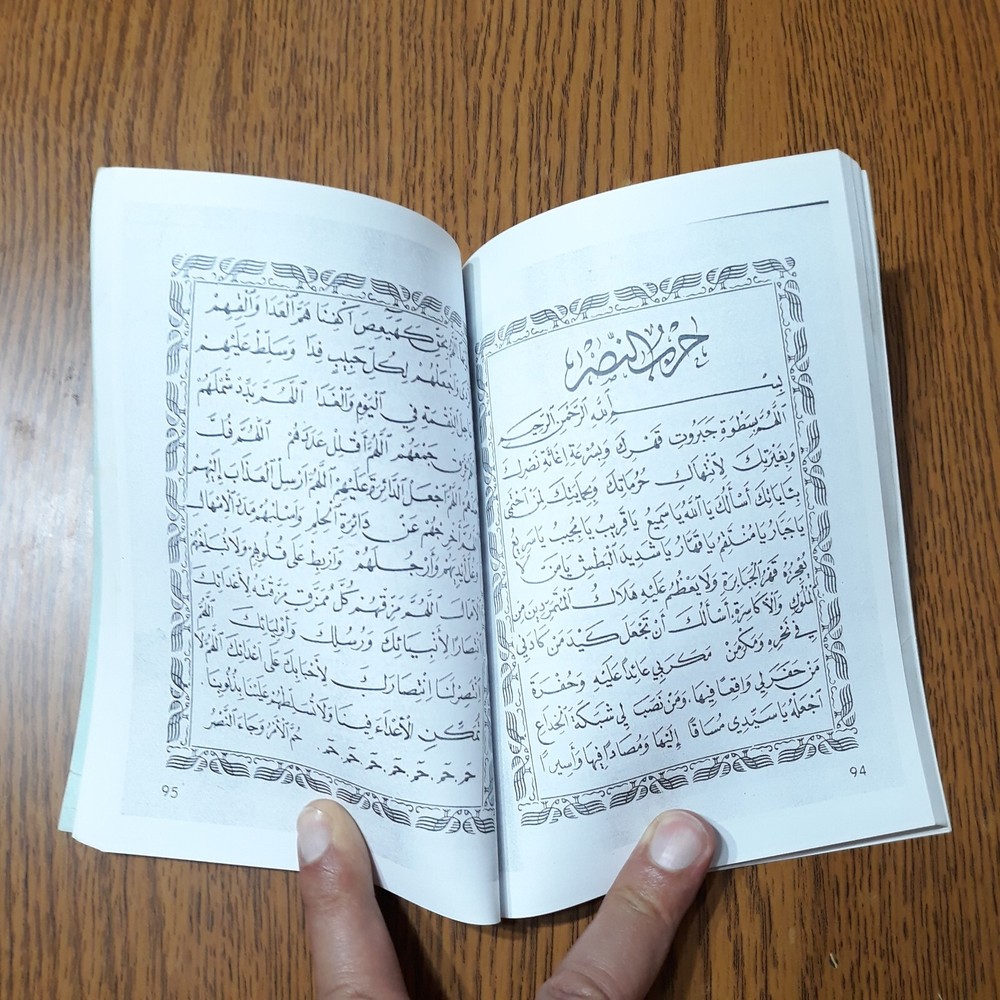 حِزْبُ النَّصْرِ
بِسْمِ اللهِ الرَّحْمنِ الرَّحِيمِ
اَللّهُمَّ بِسَطْوَةِ جَبَرُوتِ قَهْرِكَ وَبِسُرْعَةِ اِغَاثَةِ نَصْرِكَ
وَبِغَيْرَتِكَ لِانْتِهَاكِ حُرُمَاتِكَ وَبِحِمَايَتِكَ لِمَنِ احْتَمَى
بِايَاتِكَ اَسْأَلُكَ يَا اَللهُ يَا سَمِيعُ يَا قَرِيبُ يَا مُجِيبُ يَا سَرِيعُ
يَا جَبَّارُ يَا مُنْتَقِمُ يَا قَهَّارُ يَا شَدِيدَ الْبَطْشِ يَا مَنْ لَا
يُعْجِزُهُ قَهْرُ الْجَبَابِرَةِ وَلَا يَعْظُمُ عَلَيْهِ هَلَاكُ الْمُتَمَرِّدِينَ مِنَ
الْمُلُوكِ وَالْاَكَاسِرَةِ، اَسْأَلُكَ اَنْ تَجْعَلَ كَيْدَ مَنْ كَادَنِي
فِي نَحْرِهِ وَمَكْرَ مَنْ مَكَرَ بِي عَائِدًا عَلَيْهِ وَحُفْرَةَ
مَنْ حَفَرَ لِي وَاقِعًا فِيهَا، وَمَنْ نَصَبَ لِي شَبَكَةَ الْخِدَاعِ
اجْعَلْهُ يَا سَيِّدِي مُسَاقًا اِلَيْهَا وَمُصَادًا فِيهَا وَاَسِيرًا
94
كهيعص اكْفِنَا هَمَّ الْعِدَا وَالْقِهِمُ
وَاجْعَلْهُمْ لِكُلِّ حَبِيبٍ فِدًا وَسَلِّطْ عَلَيْهِمْ
النِّقْمَةِ فِي الْيَوْمِ وَالْغَدَا اَللّهُمَّ بَدِّدْ شَمْلَهُمْ
جَمْعَهُمْ اَللّهُمَّ اَقْلِلْ عَدَدَهُمْ اَللّهُمَّ فُلَّ
اَللّهُمَّ اجْعَلِ الدَّائِرَةَ عَلَيْهِمْ اَللّهُمَّ اَرْسِلِ الْعَذَابَ اِلَيْهِمْ
اَللّهُمَّ اَخْرِجْهُمْ عَنْ دَائِرَةِ الْحِلْمِ وَاسْلُبْهُمْ مَدَدَ الْاِمْهَالِ
وَاَرْجُلَهُمْ وَارْبِطْ عَلَى قُلُوبِهِمْ وَلَا تُبَلِّغْهُمُ
الْآمَالَ اَللّهُمَّ مَزِّقْهُمْ كُلَّ مُمَزَّقٍ مَزَّقْتَهُ لِاَعْدَائِكَ
انْتِصَارًا لِاَنْبِيَائِكَ وَرُسُلِكَ وَاَوْلِيَائِكَ اَللّهُمَّ
انْتَصِرْ لَنَا انْتِصَارَكَ لِاَحْبَابِكَ عَلَى اَعْدَائِكَ اَللّهُمَّ لَا
تُمَكِّنِ الْاَعْدَاءَ فِينَا وَلَا تُسَلِّطْهُمْ عَلَيْنَا بِذُنُوبِنَا
حم، حم، حم، حم، حم، حم، حم، حُمَّ الْاَمْرُ وَجَاءَ النَّصْرُ
95